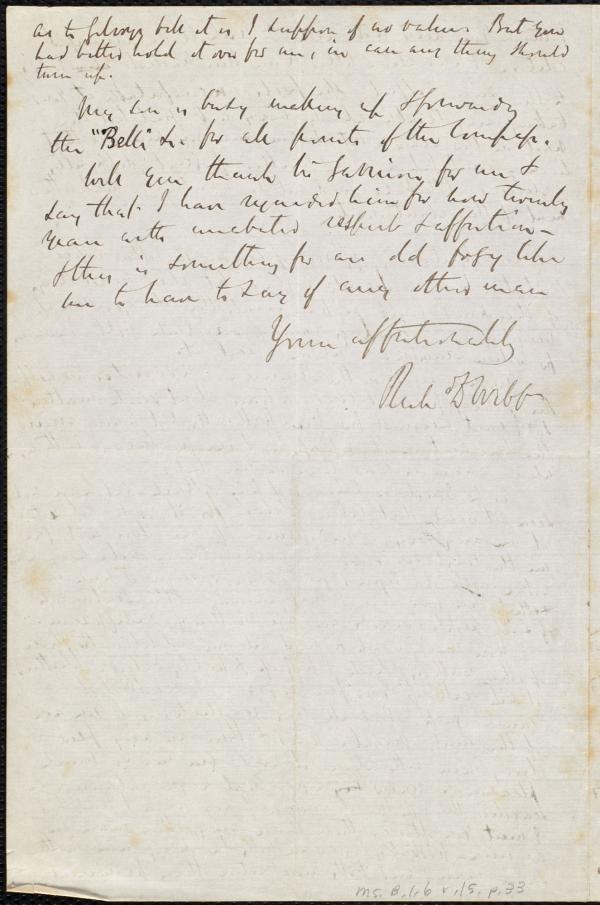 as to bill it is, I suppose of no value. But you
had better hold it over for me, in case any thing should
turn up.
My son is busy making up & forwarding
the "Bells" &c for all points of the compass.
Will you thank Mr Garrison for me &
say that I have regarded him for now twenty
years with unabated respect & affection -
& this is something for an old fogy like
me to have to say of any other man
Yours affectionately
Rich D Webb
Ms. B.1.6 v.15, p.33